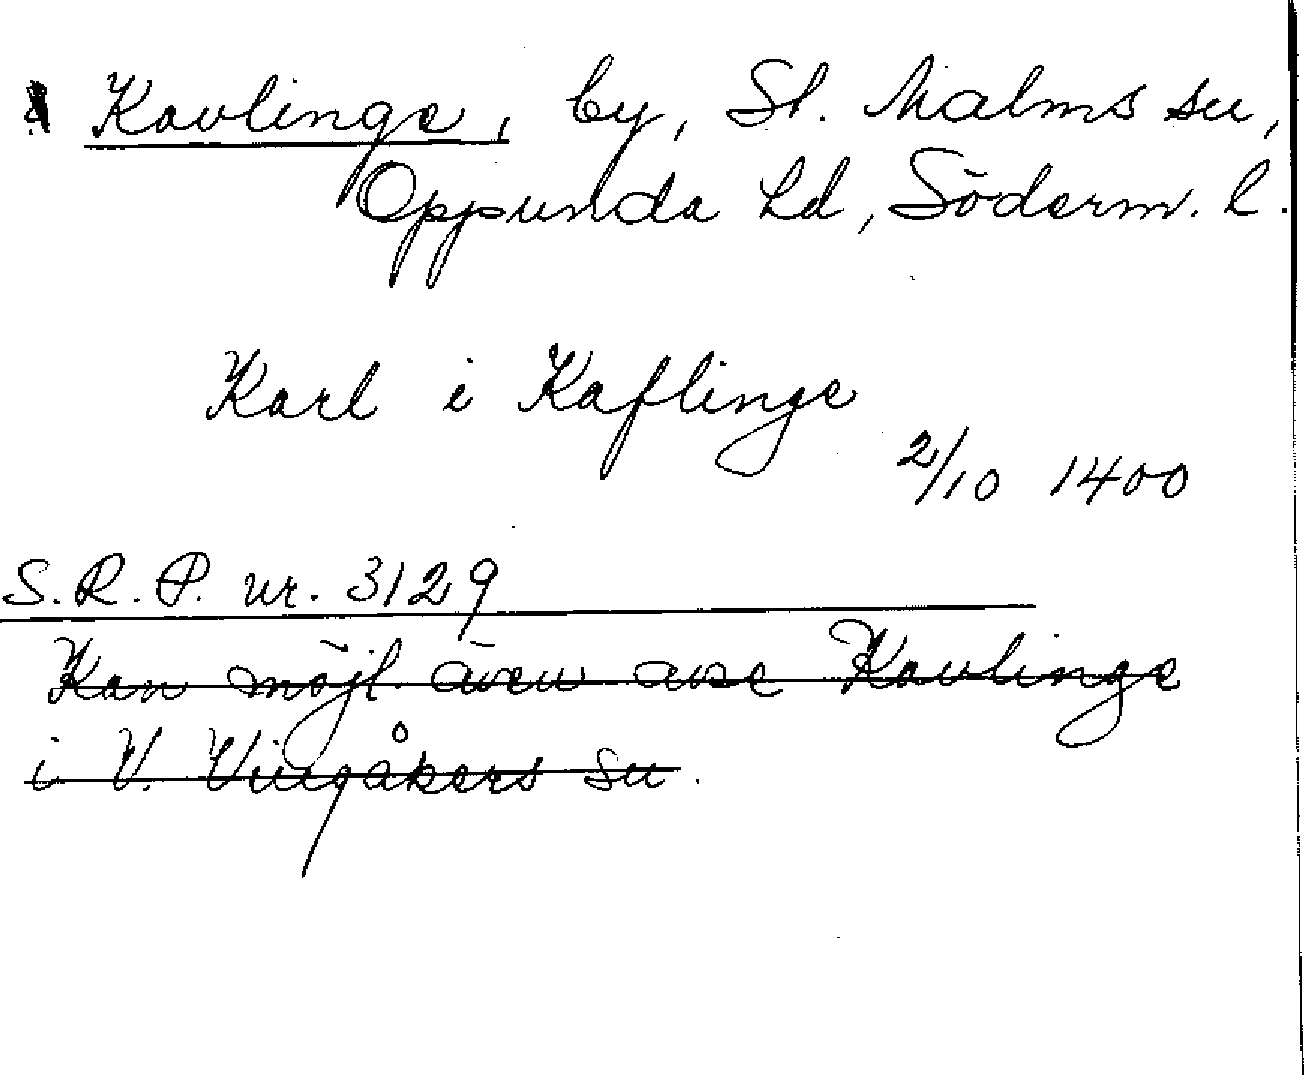 Kavlinge, by, St. Malms sn,
Oppunda hd, Söderm. l.
Karl i Kaflinge
2/10 1400
S.R.P. nr. 3129
Kan möjl. även avse Kavlinge
i V. Vingåkers sn.